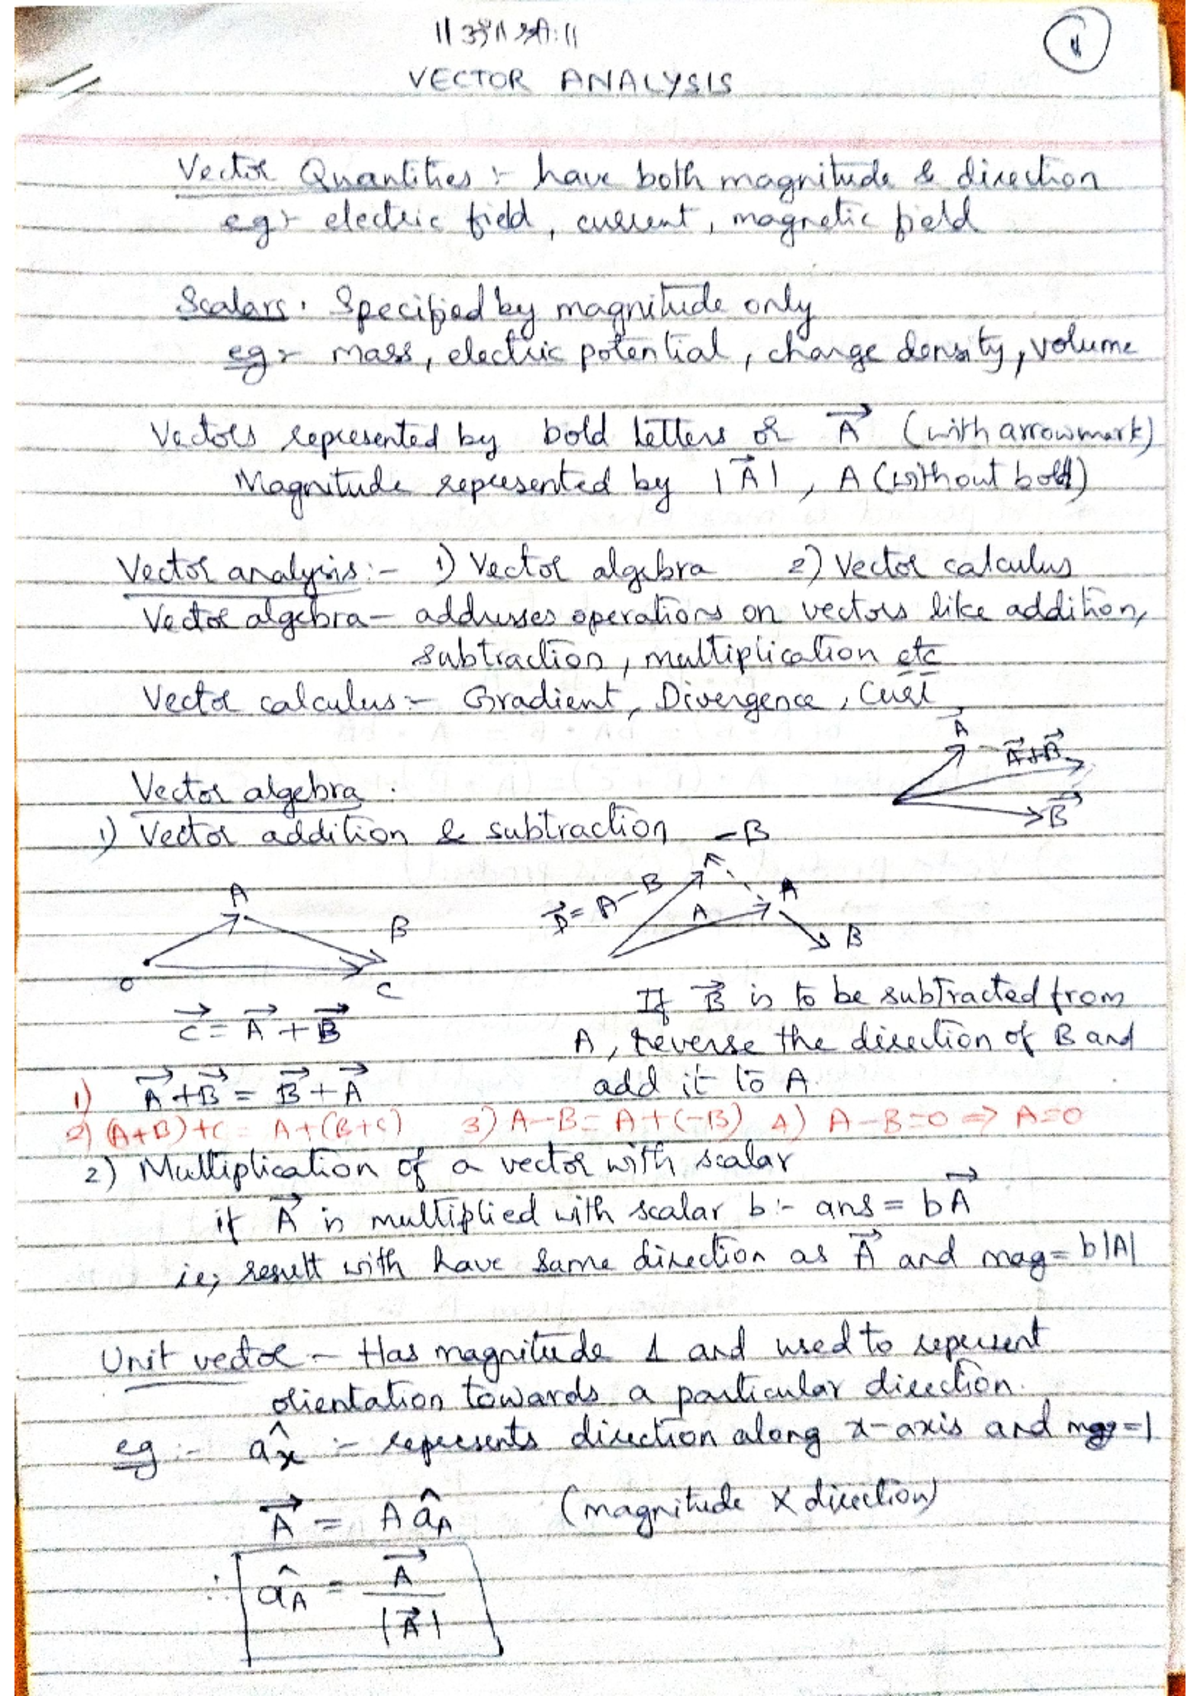 VECTOR ANALYSIS
Vector Quantities :- have both magnitude & direction
eg:- electric field, current, magnetic field
Scalars. Specified by magnitude only
eg:- mass, electric potential, charge density, volume
Vectors represented by bold letters or \vec{A} (with arrowmark)
Magnitude represented by |\vec{A}|, A (without bold)
Vector analysis :- 1) Vector algebra 2) Vector calculus
Vector algebra - addresses operations on vectors like addition,
subtraction, multiplication etc
Vector calculus :- Gradient, Divergence, Curl
\vec{A}
\vec{A}+\vec{B}
\vec{B}
Vector algebra.
1) Vector addition & subtraction
-B
A
B
O
C
\vec{D} = A-B
A
A
B
\vec{C} = \vec{A} + \vec{B}
If \vec{B} is to be subtracted from
A, reverse the direction of B and
add it to A.
1) \vec{A}+\vec{B} = \vec{B}+\vec{A}
2) (A+B)+C = A+(B+C) 3) A-B = A+(-B) 4) A-B=0 => A=0
2) Multiplication of a vector with scalar
if \vec{A} is multiplied with scalar b :- ans = b\vec{A}
ie; result with have same direction as \vec{A} and mag = b|A|
Unit vector - Has magnitude 1 and used to represent
orientation towards a particular direction.
eg :- \hat{a}_x :- represents direction along x-axis and mag=1
\vec{A} = A \hat{a}_A (magnitude X direction)
∴ \hat{a}_A = \frac{\vec{A}}{|\vec{A}|}